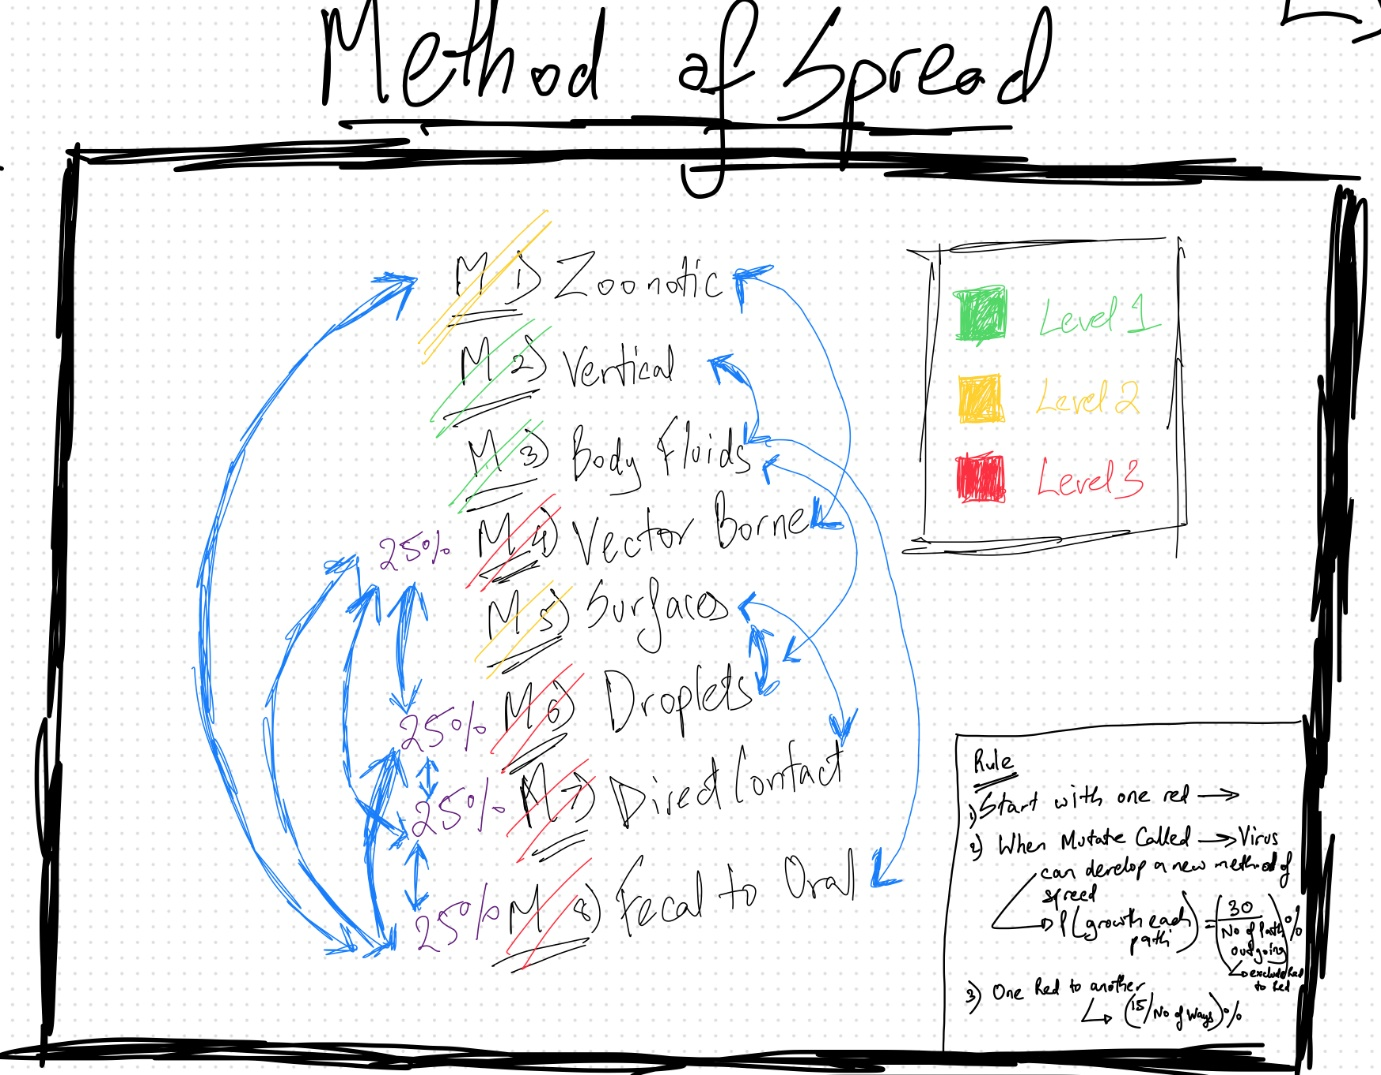 Method of Spread
M 1) Zoonotic
M 2) Vertical
M 3) Body Fluids
25% M 4) Vector Borne
M 5) Surfaces
25% M 6) Droplets
25% M 7) Direct Contact
25% M 8) Fecal to Oral
Level 1
Level 2
Level 3
Rule
1) Start with one red →
2) When Mutate Called → Virus
can develop a new method of
spreed
P(growth each path) = (30 / No of path outgoing)%
exclude Red
to Red
3) One Red to another
(15/No of ways)%